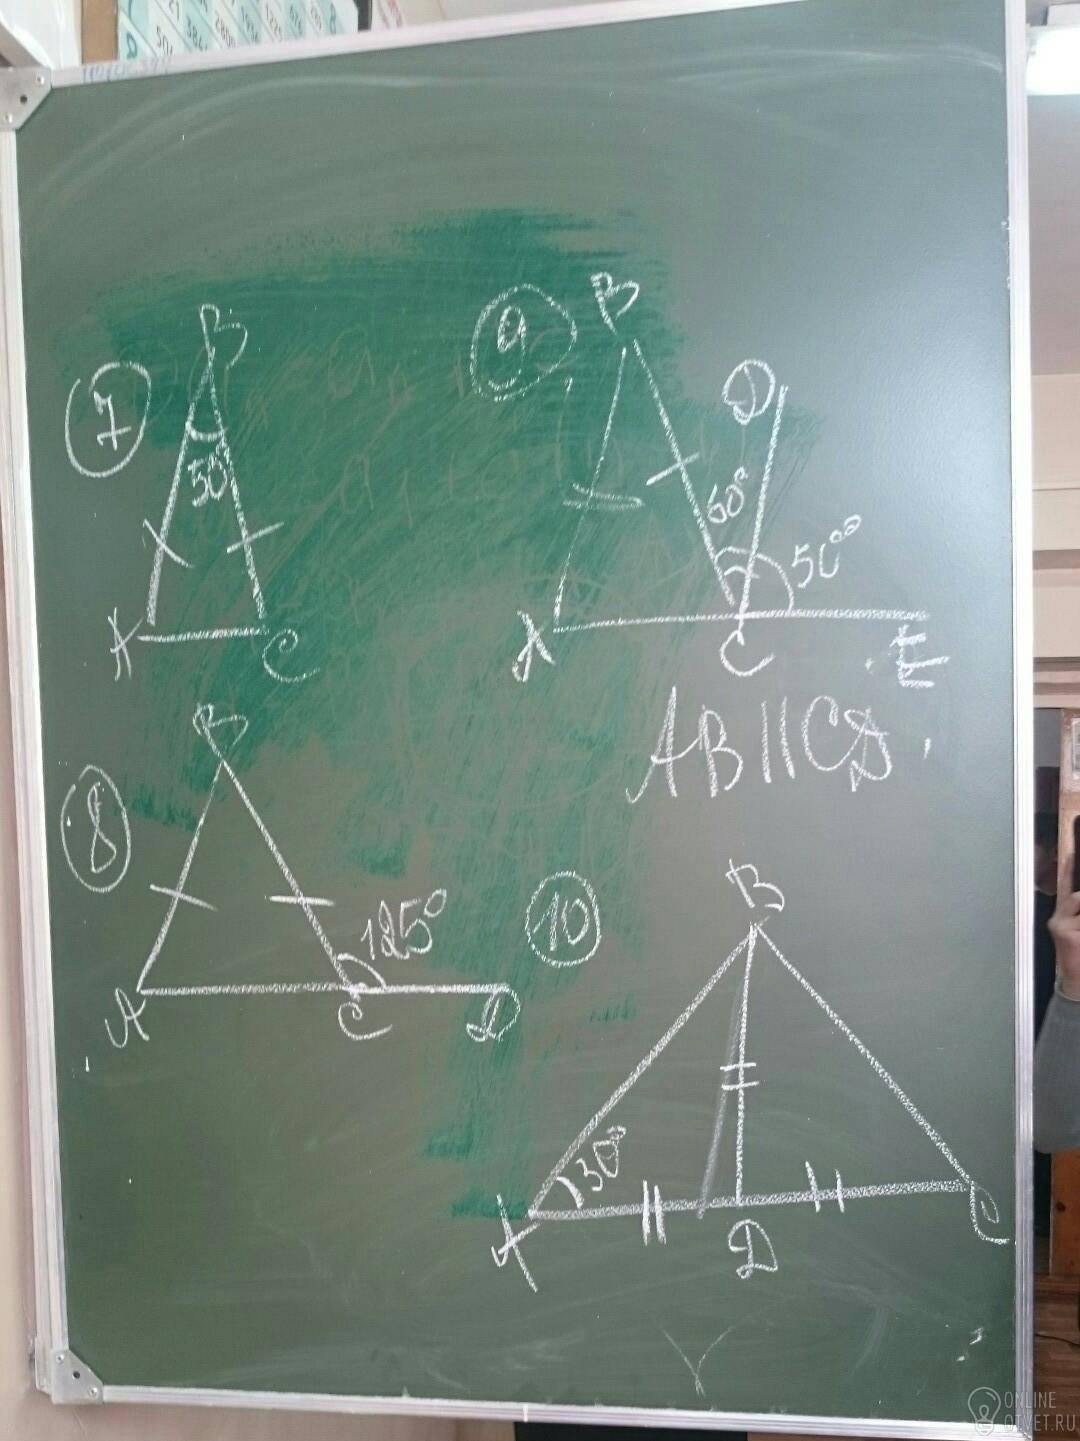 7
B
50°
A
C
8
B
125°
A
C
D
9
B
D
60°
50°
A
C
E
AB || CD
10
B
30°
A
D
C
ONLINE
OTVET.RU